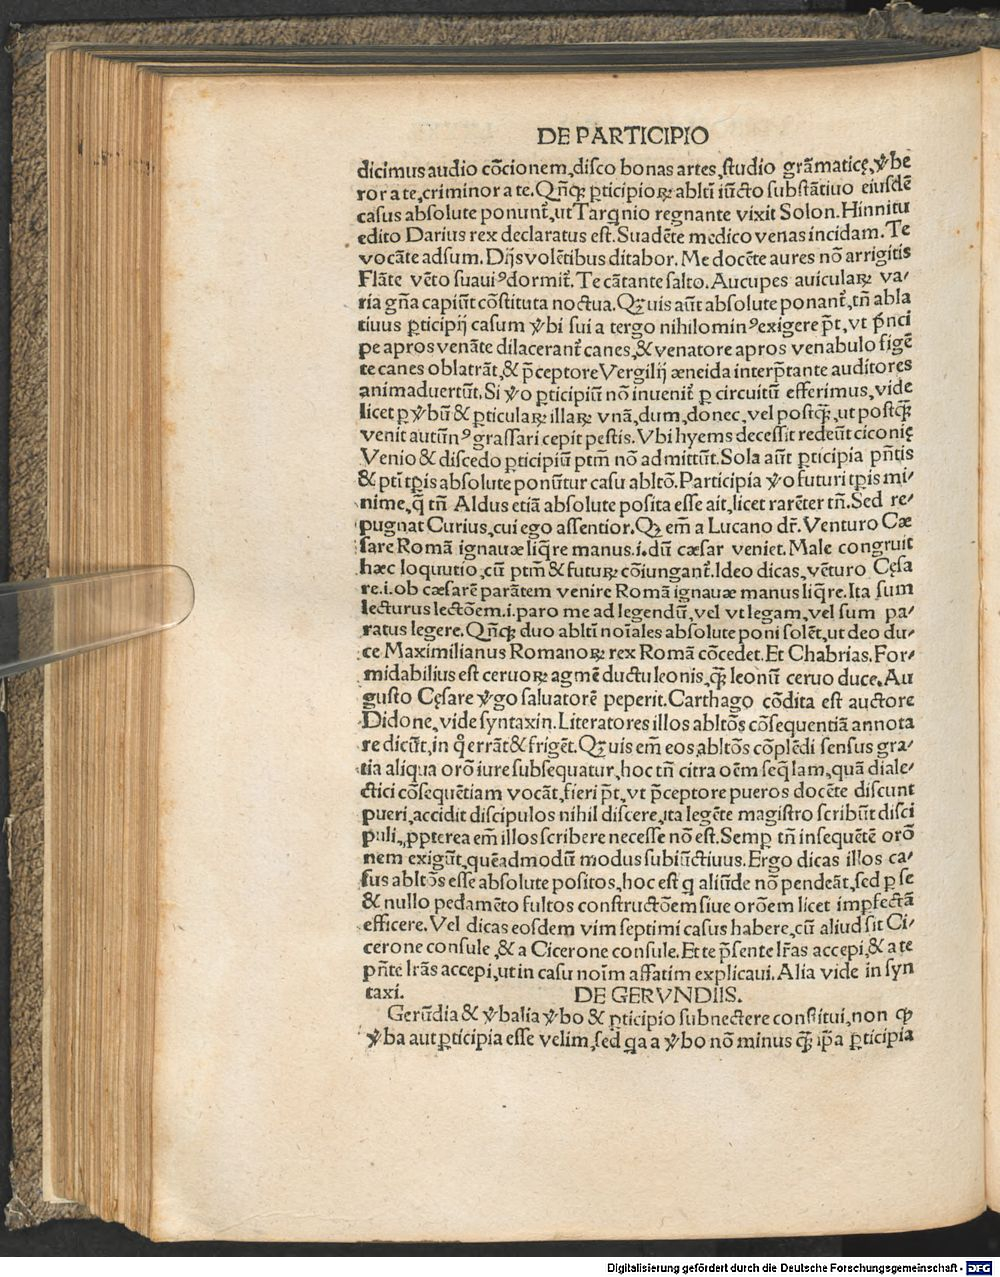 DE PARTICIPIO
dicimus audio cõcionem, disco bonas artes, studio grãmaticę, ꝟbe
ror a te, criminor a te. Qñꝙ ꝑticipioꝝ abltĩ iũcto substãtiuo eiusdẽ
casus absolute ponunt᷑, ut Tarqnio regnante vixit Solon. Hinnitu
edito Darius rex declaratus est. Suadẽte medico venas incidam. Te
vocãte adsum. Dijs volẽtibus ditabor. Me docẽte aures nõ arrigitis
Flãte vẽto suauiꝰ dormit᷑. Te cãtante salto. Aucupes auiculaꝝ va⸗
ria gña capiũt cõstituta noctua. Qꝫuis aũt absolute ponant᷑, tñ abla
tiuus ꝑticipij casum ꝟbi sui a tergo nihilominꝰ exigere p̃t, vt pñci
pe apros venãte dilacerant᷑ canes, & venatore apros venabulo figẽ
te canes oblatrãt, & p̃ceptore Vergilij æneida interp̃tante auditores
animaduertũt. Si ꝟo ꝑticipiũ nõ inuenit᷑ ꝑ circuitũ efferimus, vide
licet ꝑ ꝟbũ & ꝑticulaꝝ illaꝝ vnã, dum, donec, vel postꝙ̃, ut postꝙ̃
venit autũnꝰ grassari cepit pestis. Vbi hyems decessit redeũt ciconię
Venio & discedo ꝑticipiũ ptm̃ nõ admittũt. Sola aũt ꝑticipia pñtis
& ptĩ tꝑis absolute ponũtur casu abltõ. Participia ꝟo futuri tꝑis mi⸗
nime, q̃ tñ Aldus etiã absolute posita esse ait, licet rarẽter tñ. Sed re⸗
pugnat Curius, cui ego assentior. Qꝫ em̃ a Lucano dr̃. Venturo Cæ
sare Romã ignauæ liq̃re manus .i. dũ cæsar veniet. Male congruit
hæc loquutio, cũ ptm̃ & futuꝝ cõiungant᷑. Ideo dicas, vẽturo Cęsa
re .i. ob cæsarẽ parãtem venire Romã ignauæ manus liq̃re. Ita sum
lecturus lectõem .i. paro me ad legendũ, vel vt legam, vel sum pa⸗
ratus legere. Qñꝙ duo abltĩ noĩales absolute poni solẽt, ut deo du⸗
ce Maximilianus Romanoꝝ rex Romã cõcedet. Et Chabrias. For⸗
midabilius est ceruoꝝ agmẽ ductu leonis, ꝙ̃ leonũ ceruo duce. Au
gusto Cęsare ꝟgo saluatorẽ peperit. Carthago cõdita est auctore
Didone, vide syntaxin. Literatores illos abltõs cõsequentiã annota
re dicũt, in q̊ errãt & frigẽt. Qꝫuis em̃ eos abltõs cõplẽdi sensus gra⸗
tia aliqua orõ iure subsequatur, hoc tñ citra oẽm seq̃lam, quã diale⸗
ctici cõsequẽtiam vocãt, fieri p̃t, vt p̃ceptore pueros docẽte discunt
pueri, accidit discipulos nihil discere, ita legẽte magistro scribũt disci
puli, ꝓpterea em̃ illos scribere necesse nõ est. Semꝑ tñ insequẽtẽ orõ
nem exigũt, quẽadmodũ modus subiũctiuus. Ergo dicas illos ca⸗
sus abltõs esse absolute positos, hoc est q aliũde nõ pendeãt, sed ꝑ se
& nullo pedamẽto fultos constructõem siue orõem licet imꝑfectã
efficere. Vel dicas eosdem vim septimi casus habere, cũ aliud sit Ci⸗
cerone consule, & a Cicerone consule. Et te p̃sente lr̃as accepi, & a te
pñte lr̃as accepi, ut in casu noĩm affatim explicaui. Alia vide in syn
taxi. DE GERVNDIIS.
Gerũdia & ꝟbalia ꝟbo & ꝑticipio subnectere constitui, non ꝙ
ꝟba aut ꝑticipia esse velim, sed qa a ꝟbo nõ minus ꝙ̃ ip̃a ꝑticipia
Digitalisierung gefördert durch die Deutsche Forschungsgemeinschaft - DFG